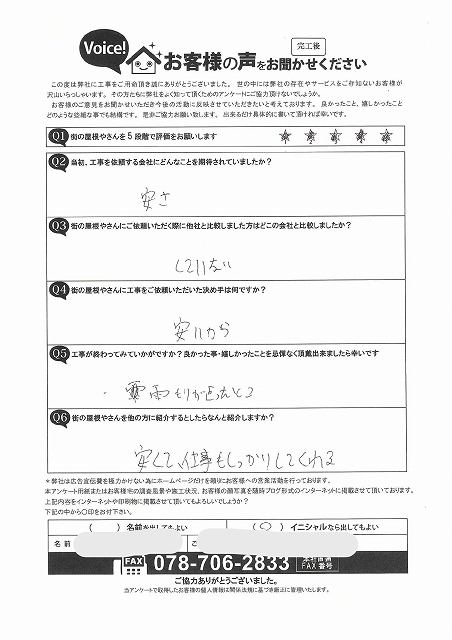 Voice!
お客様の声をお聞かせください
完工後
この度は弊社に工事をご用命頂き誠にありがとうございました。世の中には弊社の存在やサービスをご存知ないお客様が
沢山いらっしゃいます。その方たちに弊社をよく知って頂くためのアンケートにご協力頂けないでしょうか。
お客様のご意見をお聞かせいただき今後の活動に反映させていただきたいと考えております。良かったこと、嬉しかったこと
どのような些細な事でも結構です。是非ご協力お願い致します。出来るだけ具体的に書いて頂ければ幸いです。
Q1 街の屋根やさんを5段階で評価をお願いします
Q2 当初、工事を依頼する会社にどんなことを期待されていましたか?
安さ
Q3 街の屋根やさんにご依頼いただく際に他社と比較しました方はどこの会社と比較しましたか?
していない
Q4 街の屋根やさんに工事をご依頼いただいた決め手は何ですか?
安いから
Q5 工事が終わってみていかがですか?良かった事・嬉しかったことを忌憚なく頂戴出来ましたら幸いです
雨もりが
Q6 街の屋根やさんを他の方に紹介するとしたらなんと紹介しますか?
安くて、仕事もしっかりしてくれる
*弊社は広告宣伝費を極力かけない為にホームページだけを頼りにお客様への営業活動を行っております。
本アンケート用紙またはお客様宅の調査風景や施工状況、お客様の顔写真を随時ブログ形式のインターネットに掲載させて頂いております。
上記内容をインターネットや印刷物に掲載させて頂いてもよろしいでしょうか?
下記の中から〇印をお付下さい。
( ) 名前を出してもよい
(〇) イニシャルなら出してもよい
名前
ご
FAX 078-706-2833
FAX番号
ご協力ありがとうございました。
当アンケートで取得したお客様の個人情報は関係法規に基づき厳正に管理いたします。